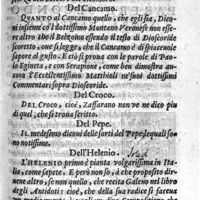 Del Cancamo.
QVANTO al Cancamo quello, che egli sia, Dico-
ni insieme co'l dottissimo Montano Veronese non esse-
re altro che il Belgioino essendo il testo di Dioscoride
scoretto, oue si legge, che il Cancamo è di spiaceuole
sapore al gusto. E ciò si proua con le parole di Pau-
lo Egineta, e con Serapione, come ben dimostra anco-
ra l'Eccellentissimo Matthioli ne'suoi dottissimi
Commentari sopra Dioscoride.
Del Croco.
DEL CROCO, cioè, Zaffarano non ve ne dico più
di quel, che si troua scritto.
Del Pepe.
IL medesimo dicoui delle sorti del Pepe, lequali so-
no notissime.
Dell'Helenio.
L'HELENIO primo è pianta volgarissima in Ita-
lia, come sapete. E però non so, à che proposito dir-
uene altro, se non quello, che recita Galeno nel libro
degli Antidoti: cioè, che della sua radice si facena